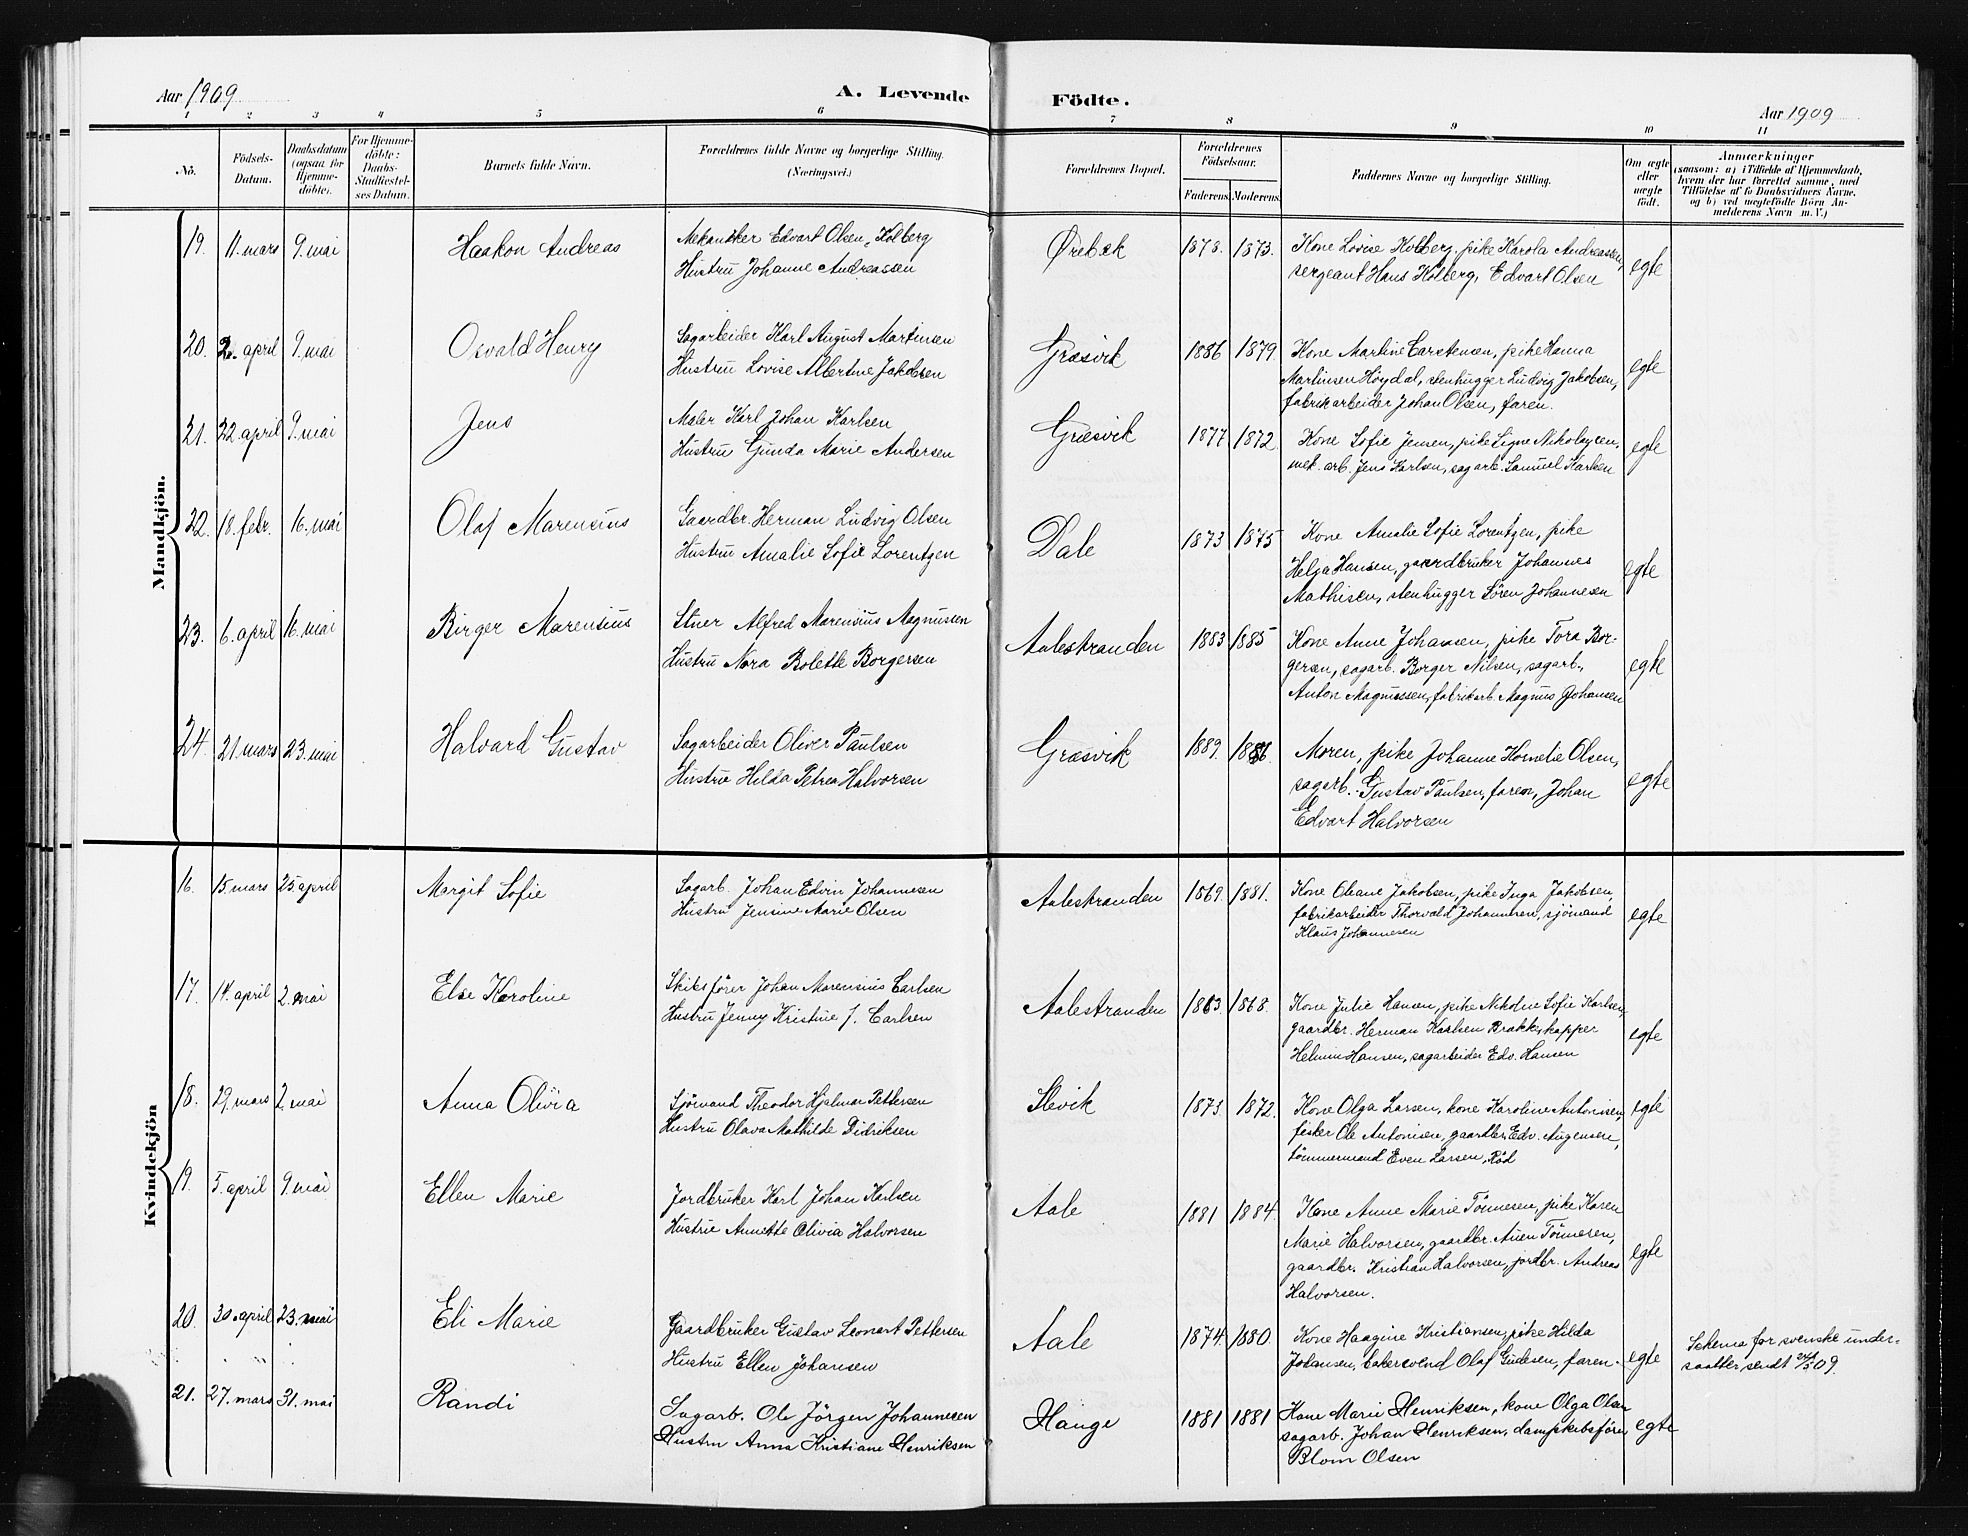 Aar 1909
A. Levende Födte.
Aar 1909
1 2 3 4 5 6 7 8 9 10 11
No.
Födsels-Datum.
Daabsdatum (ogsaa for Hjemmedöbte).
For Hjemmedöbte: Daabs-Stadfæstelses Datum.
Barnets fulde Navn.
Forældrenes fulde Navne og borgerlige Stilling. (Næringsvei.)
Forældrenes Bopæl.
Forældrenes Födselsaar.
Faderens. Moderens.
Faddernes Navne og borgerlige Stilling.
Om ægte eller uægte födt.
Anmærkninger
(saasom: a) i Tilfælde af Hjemmedaab,
hvem der har forrettet samme, med
Tilföielse af to Daabsvidners Navne.
og b) ved uægtefödte Börn An-
melderens Navn m. V.)
Mandkjön.
19. 11. mars 9. mai Haakon Andreas Mekaniker Edvart Olsen, Kolberg
Hustru Johanne Andreassen
Ørebæk 1878. 1873. Kone Lovise Kolberg, pike Karola Andreassen,
sergeant Hans Kolberg, Edvart Olsen egte
20. 2. april 9. mai Osvald Henry Sagarbeider Karl August Martinsen
Hustru Lovise Albertine Jakobsen
Græsvik 1886 1879. Kone Martine Carstensen, pike Hanna
Martinsen Höydal, stenhugger Ludvig Jakobsen,
fabrikarbeider Johan Olsen, faren. egte
21. 22. april 9. mai Jens Maler Karl Johan Karlsen
Hustru Gunda Marie Andersen
Græsvik 1877 1872. Kone Sofie Jensen, pike Signe Nikolaysen,
mek. arb. Jens Karlsen, sagarb. Samuel Karlsen egte
22. 18. febr. 16. mai Olaf Marensius Gaardbr. Herman Ludvig Olsen
Hustru Amalie Sofie Lorentzen
Dale 1873 1875 Kone Amalie Sofie Lorentzen, pike
Helga Hansen, gaardbruker Johannes
Mathisen, stenhugger Sören Johannesen egte
23. 6. april 16. mai Birger Marensius Stuer Alfred Marensius Magnussen
Hustru Nora Bolette Borgersen
Aalestranden 1883 1885 Kone Anne Johansen, pike Tora Bor-
gersen, sagarb. Borger Nilsen, sagarb.
Anton Magnussen, fabrikarb. Magnus Johansen egte
24. 21. mars 23. mai Halvard Gustav Sagarbeider Oliver Paulsen
Hustru Hilda Petrea Halvorsen
Græsvik 1889. 1886. Moren, pike Johanne Kornelie Olsen,
sagarb. Gustav Paulsen, faren, Johan
Edvart Halvorsen egte
Kvindekjön
16. 15. mars 25 april Margit Sofie Sagarb. Johan Edvin Johannesen
Hustru Jensine Marie Olsen
Aalestranden 1869. 1881. Kone Oleane Jakobsen, pike Inga Jakobsen,
fabrikarbeider Thorvald Johannesen, sjömand
Klaus Johannesen egte
17. 14. april 2. mai Else Karoline Skibsförer Johan Marensius Carlsen
Hustru Jenny Kristine J. Carlsen
Aalestranden 1863. 1868. Kone Julie Hansen, pike Nikoline Sofie Karlsen,
gaardbr. Herman Karlsen Brække, kapper
Helmin Hansen, sagarbeider Edv. Hansen egte
18. 29. mars 2. mai Anna Olivia Sjömand Theodor Hjalmar Pettersen
Hustru Olava Mathilde Didriksen
Slevik 1873. 1872. Kone Olga Larsen, kone Karoline Antonisen,
fisker Ole Antonisen, gaardbr. Edv. Augensen,
tömmermand Even Larsen, Röd egte
19. 5. april 9. mai Ellen Marie Jordbruker Karl Johan Karlsen
Hustru Annette Olivia Halvorsen
Aale 1881 1884. Kone Anne Marie Tönnesen, pike Karen
Marie Halvorsen, gaardbr. Auen Tönnesen,
gaardbr. Kristian Halvorsen, jordbr. Andreas
Halvorsen. egte
20. 30. april 23. mai Eli Marie Gaardbruker Gustav Leonart Pettersen
Hustru Ellen Johansen
Aale 1874. 1880. Kone Haagine Kristiansen, pike Hilda
Johansen, bakersvend Olaf Gudesen, faren. egte
Schema for svenske under-
saatter sendt 24/5 09.
21. 27. mars 31. mai Randi Sagarb. Ole Jörgen Johannesen
Hustru Anna Kristiane Henriksen
Hauge 1881 1881 Kone Marie Henriksen, kone Olga Olsen
sagarb. Johan Henriksen, dampskibsförer
Blom Olsen egte